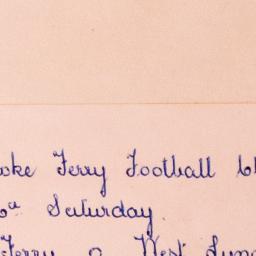 oke Ferry Football
Saturday
Ferry 0 West